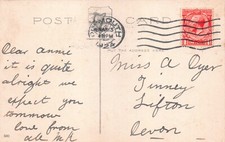 POST CARD
Dear Annie
it is quite
alright we
expect you
tomorrow
love from
all
Miss A Dyer
Tinney
Lifton
Devon